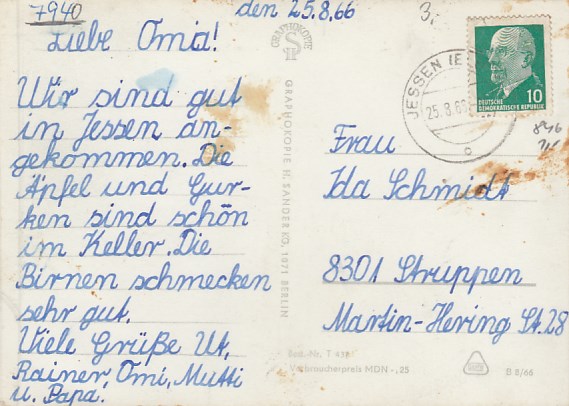 7940
den 25.8.66
Liebe Oma!
Wir sind gut
in Jessen an-
gekommen. Die
Äpfel und Gur-
ken sind schön
im Keller. Die
Birnen schmecken
sehr gut.
Viele Grüße Ut,
Rainer, Omi, Mutti
u. Papa.
GRAPHOKOPIE
GRAPHOKOPIE H. SANDER KG, 1071 BERLIN
JESSEN (E
25.8.66
10
DEUTSCHE
DEMOKRATISCHE REPUBLIK
c
Frau
Ida Schmidt
8301 Struppen
Martin-Hering St. 28
Best.-Nr. T
Verbraucherpreis MDN -,25
B 8/66